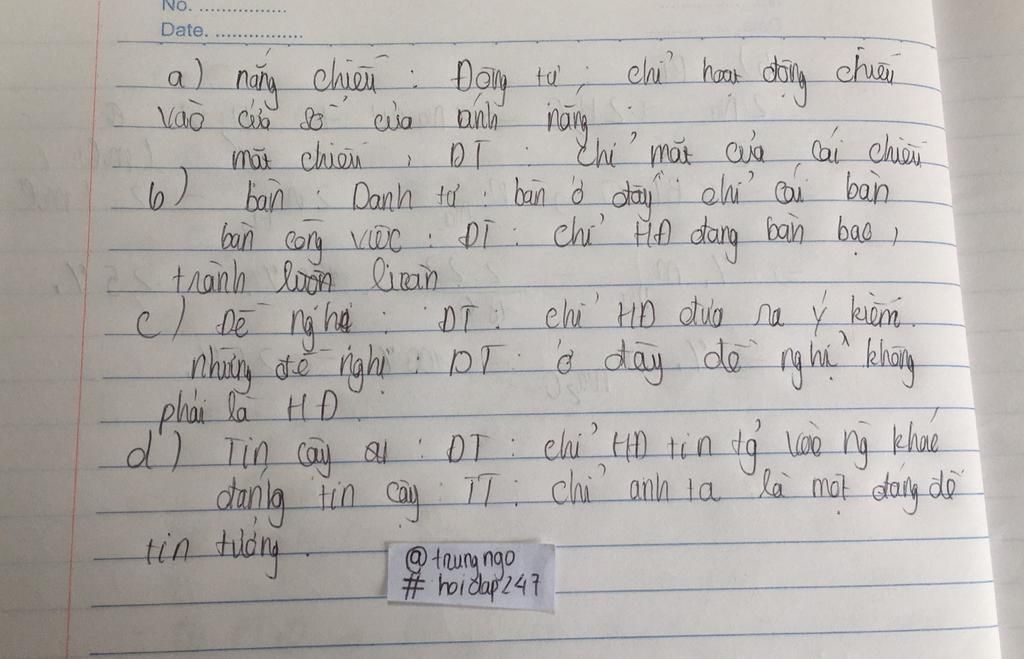 No. ................
Date. ................
a) nắng chiếu : Động từ ; chỉ hoạt động chiếu
vào cửa sổ của ánh nắng
mặt chiếu , DT : chỉ mặt của cái chiếu
b) bàn : Danh từ : bàn ở đây chỉ cái bàn
bàn công việc : ĐT : chỉ HĐ đang bàn bạc ,
tranh luận
c) Đề nghị : ĐT : chỉ HĐ đưa ra ý kiếm.
những đề nghị : DT : ở đây đề nghị không
phải là HĐ
d) Tin cậy ai : ĐT : chỉ HĐ tin tg vào ng khác
đáng tin cậy : TT : chỉ anh ta là một đáng để
tin tưởng .
@trungngo
# hoidap247